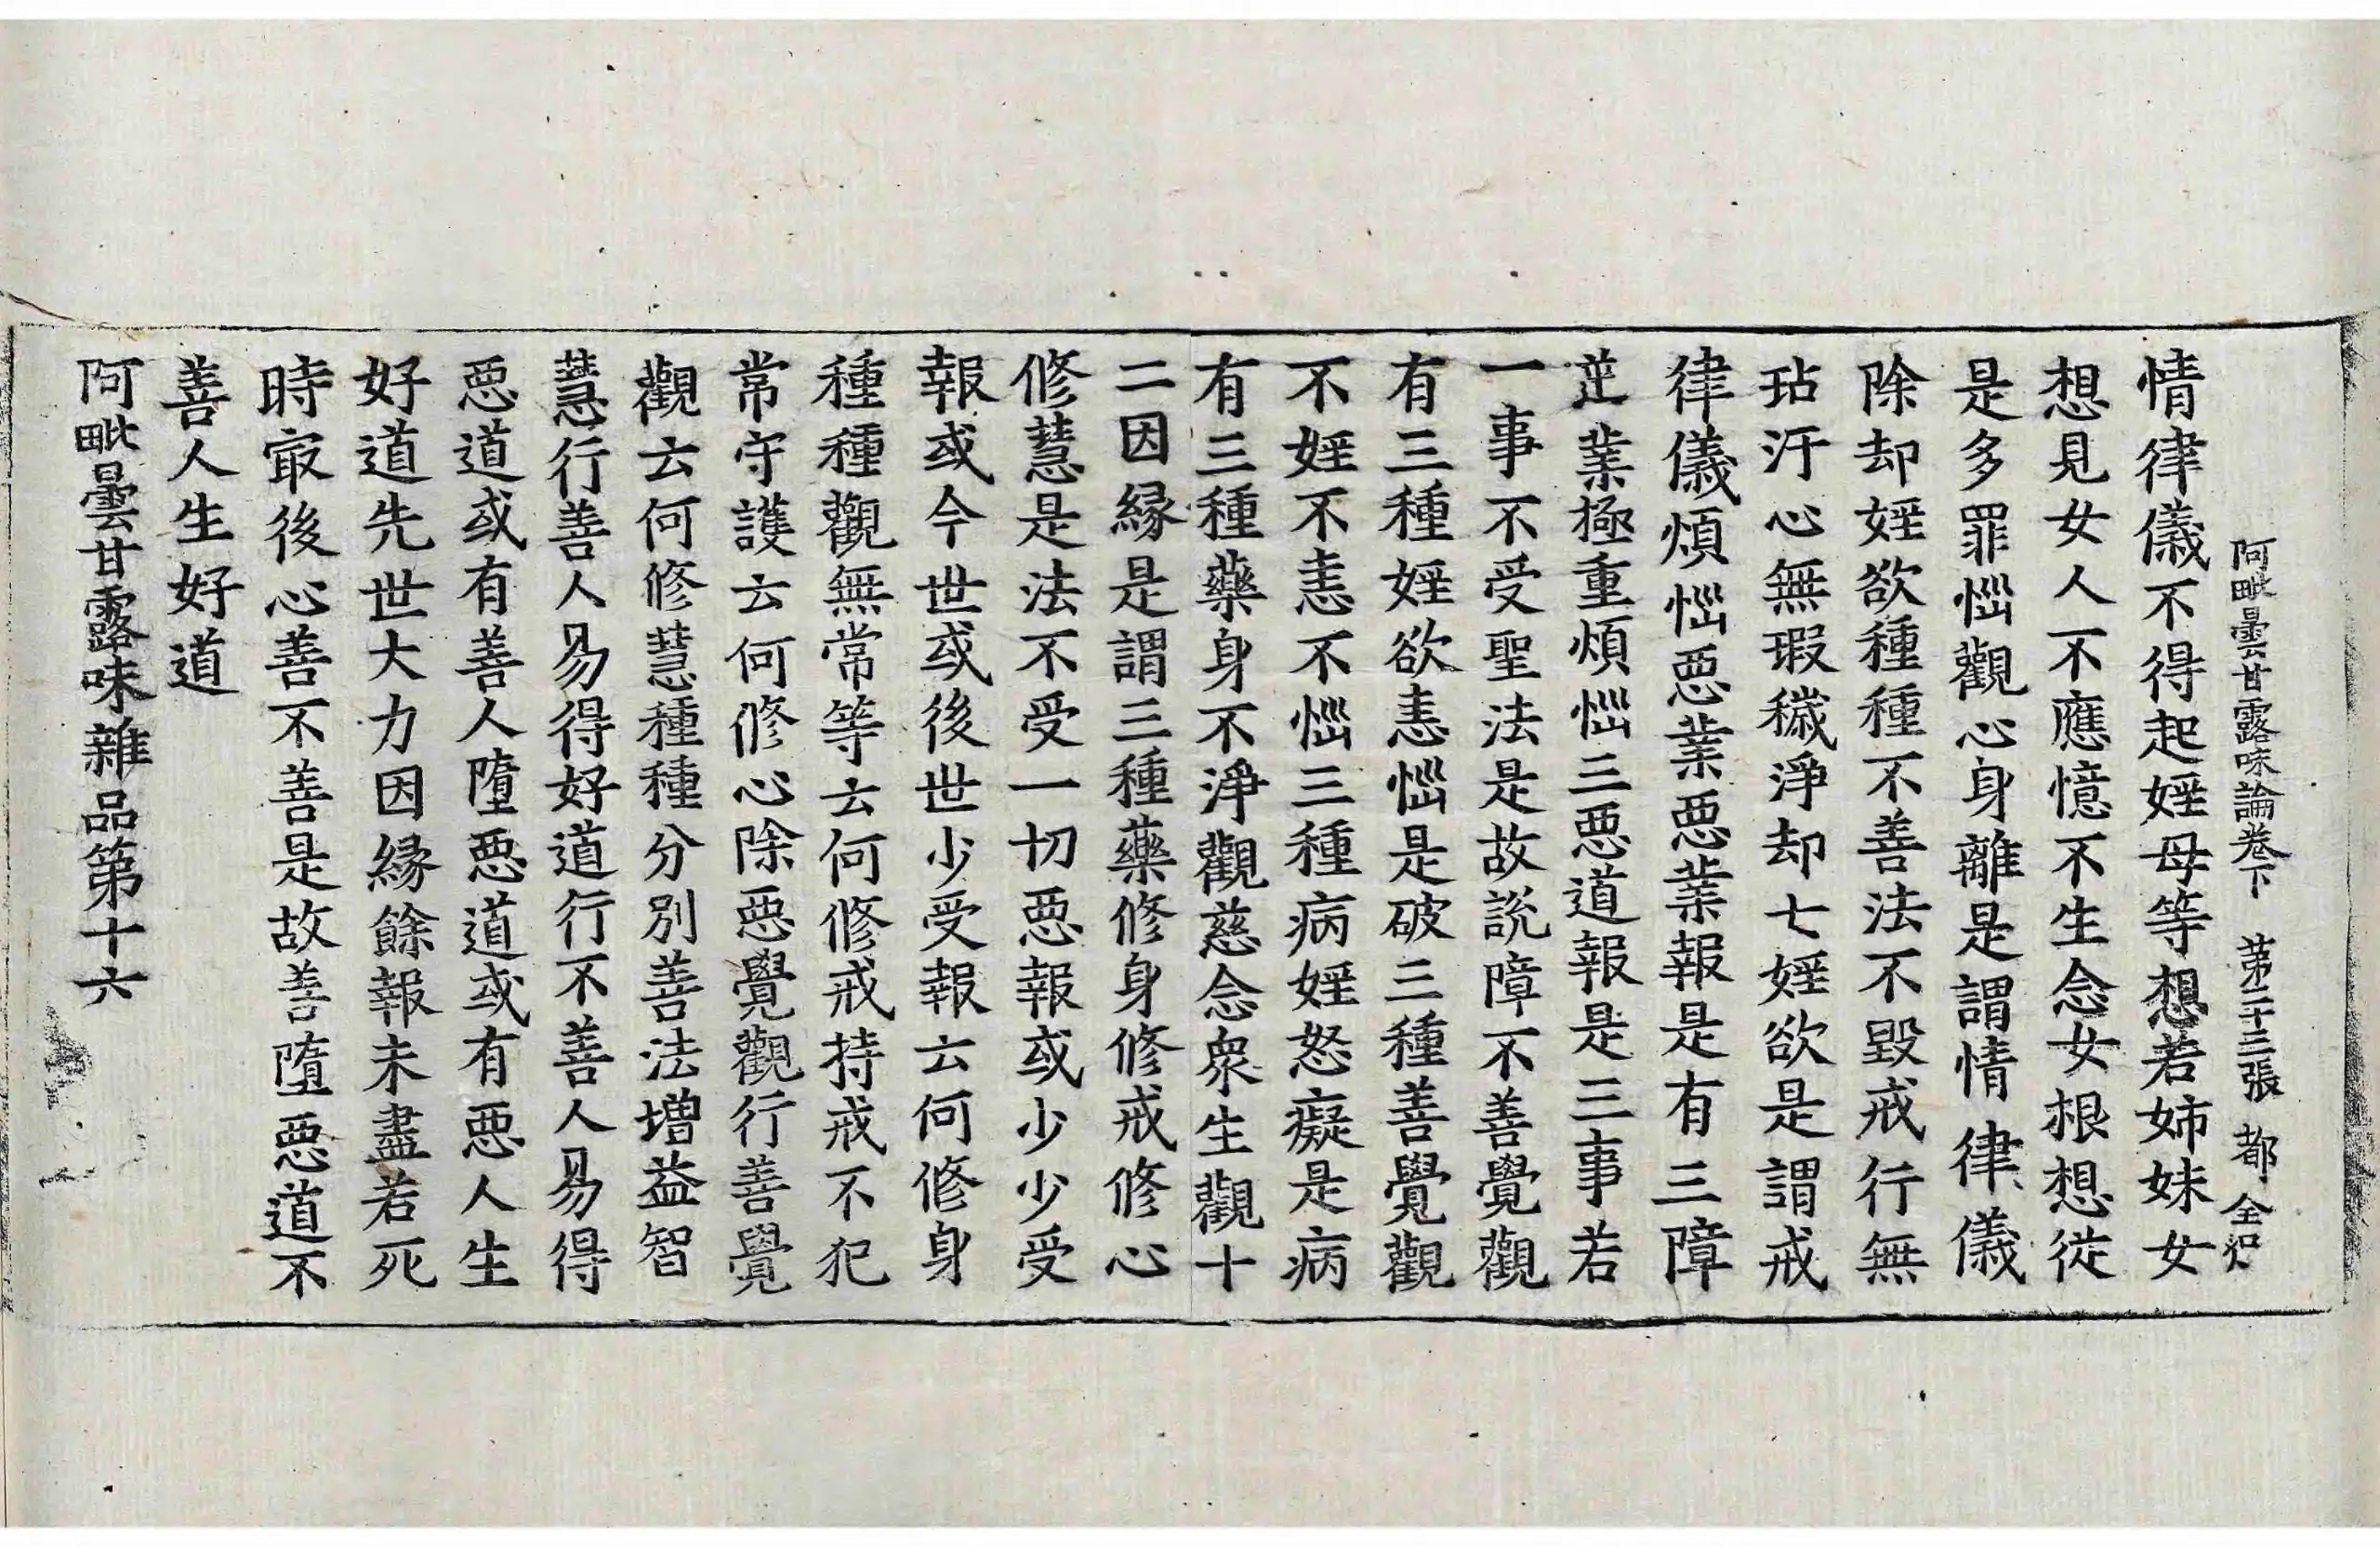 阿毗曇甘露味論卷下 苐二十三張 都 全
情律儀不得起婬母等想若姉妹女
想見女人不應憶不生念女根想從
是多罪惱觀心身離是謂情律儀
除却婬欲種種不善法不毀戒行無
玷汙心無瑕穢淨却七婬欲是謂戒
律儀煩惱惡業惡業報是有三障
業極重煩惱三惡道報是三事若
一事不受聖法是故說障不善覺觀
有三種婬欲恚惱是破三種善覺觀
不婬不恚不惱三種病婬怒癡是病
有三種藥身不淨觀慈念衆生觀十
二因緣是謂三種藥修身修戒修心
修慧是法不受一切惡報或少少受
報或今世或後世少受報云何修身
種種觀無常等云何修戒持戒不犯
常守護云何修心除惡覺觀行善覺
觀云何修慧種種分別善法增益智
慧行善人易得好道行不善人易得
惡道或有善人墮惡道或有惡人生
好道先世大力因緣餘報未盡若死
時㝡後心善不善是故善墮惡道不
善人生好道
阿毗曇甘露味雜品第十六